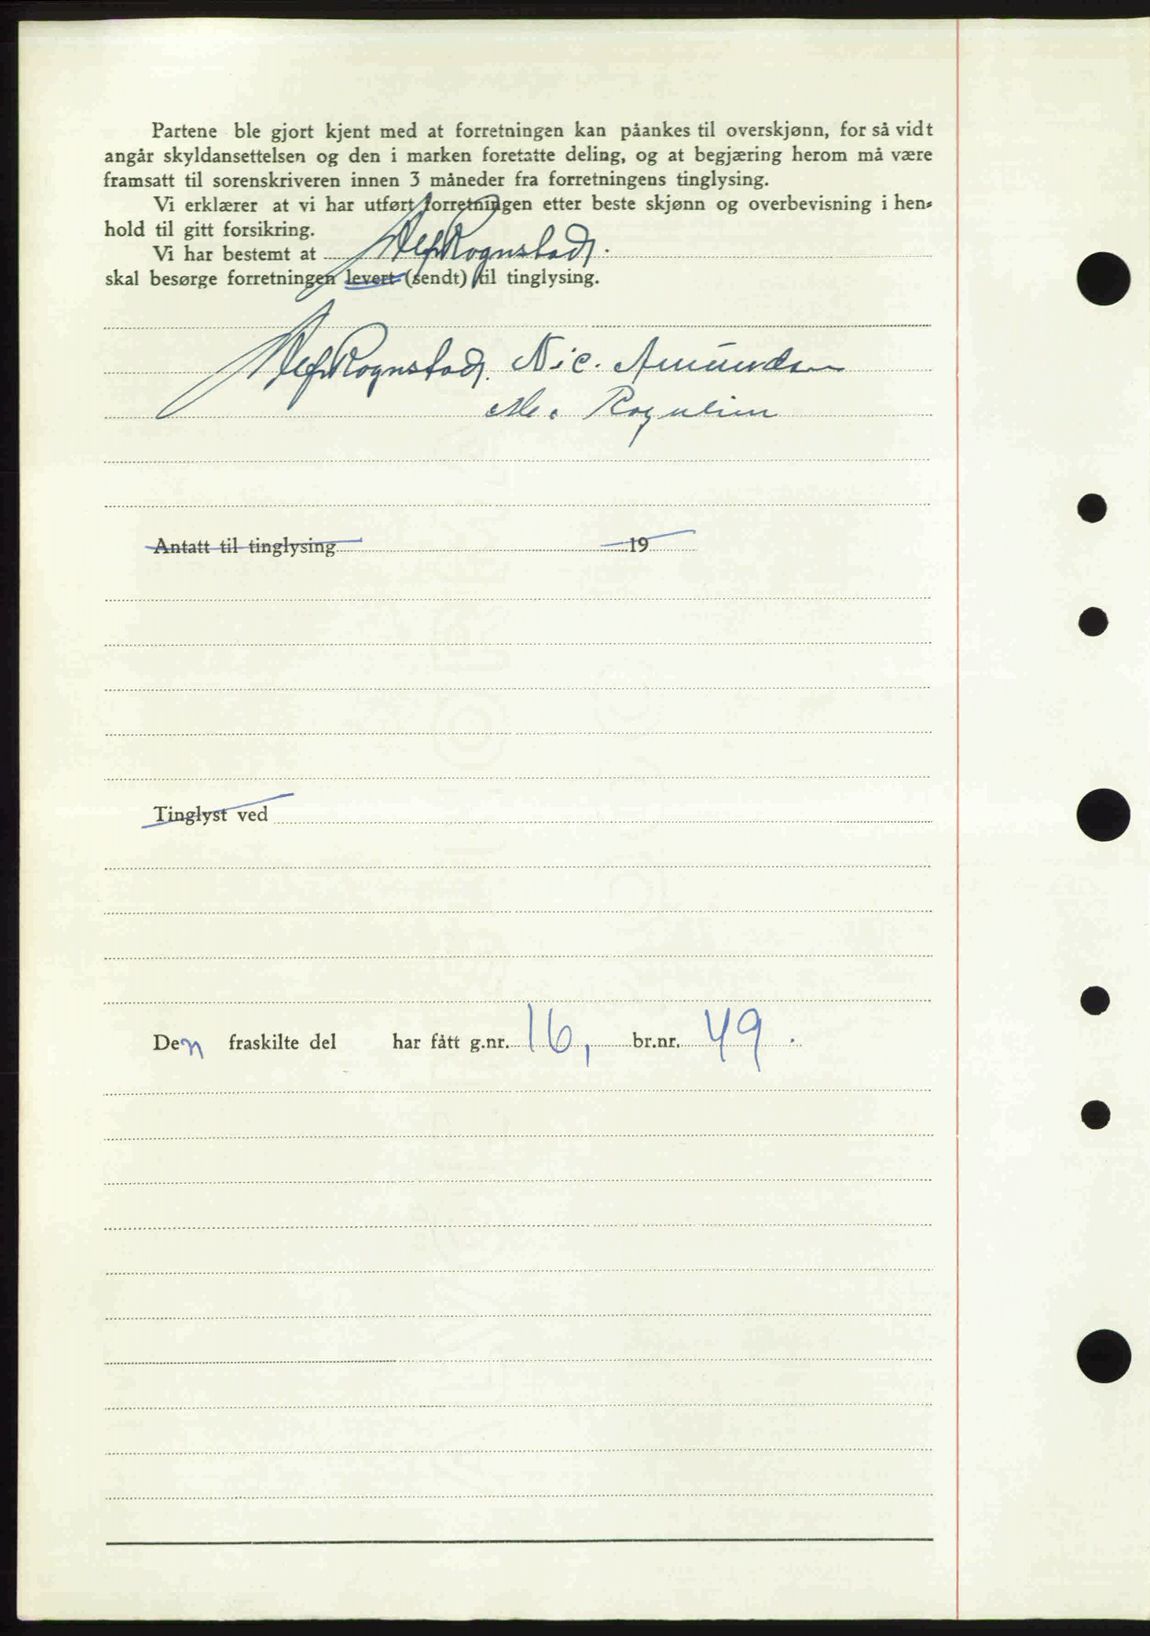 Partene ble gjort kjent med at forretningen kan påankes til overskjønn, for så vidt
angår skyldansettelsen og den i marken foretatte deling, og at begjæring herom må være
framsatt til sorenskriveren innen 3 måneder fra forretningens tinglysing.
Vi erklærer at vi har utført forretningen etter beste skjønn og overbevisning i hen-
hold til gitt forsikring.
Vi har bestemt at Alf Rognstad.
skal besørge forretningen levert (sendt) til tinglysing.
Alf Rognstad. Nic. Amundsen
Antatt til tinglysing 19
Tinglyst ved
Den fraskilte del har fått g.nr. 16, br.nr. 49.